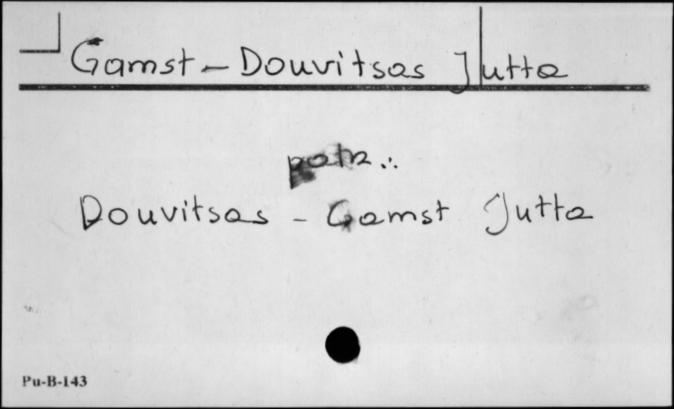 Gamst - Douvitsas Jutta
patrz:
Douvitsas - Gamst Jutta
Pu-B-143